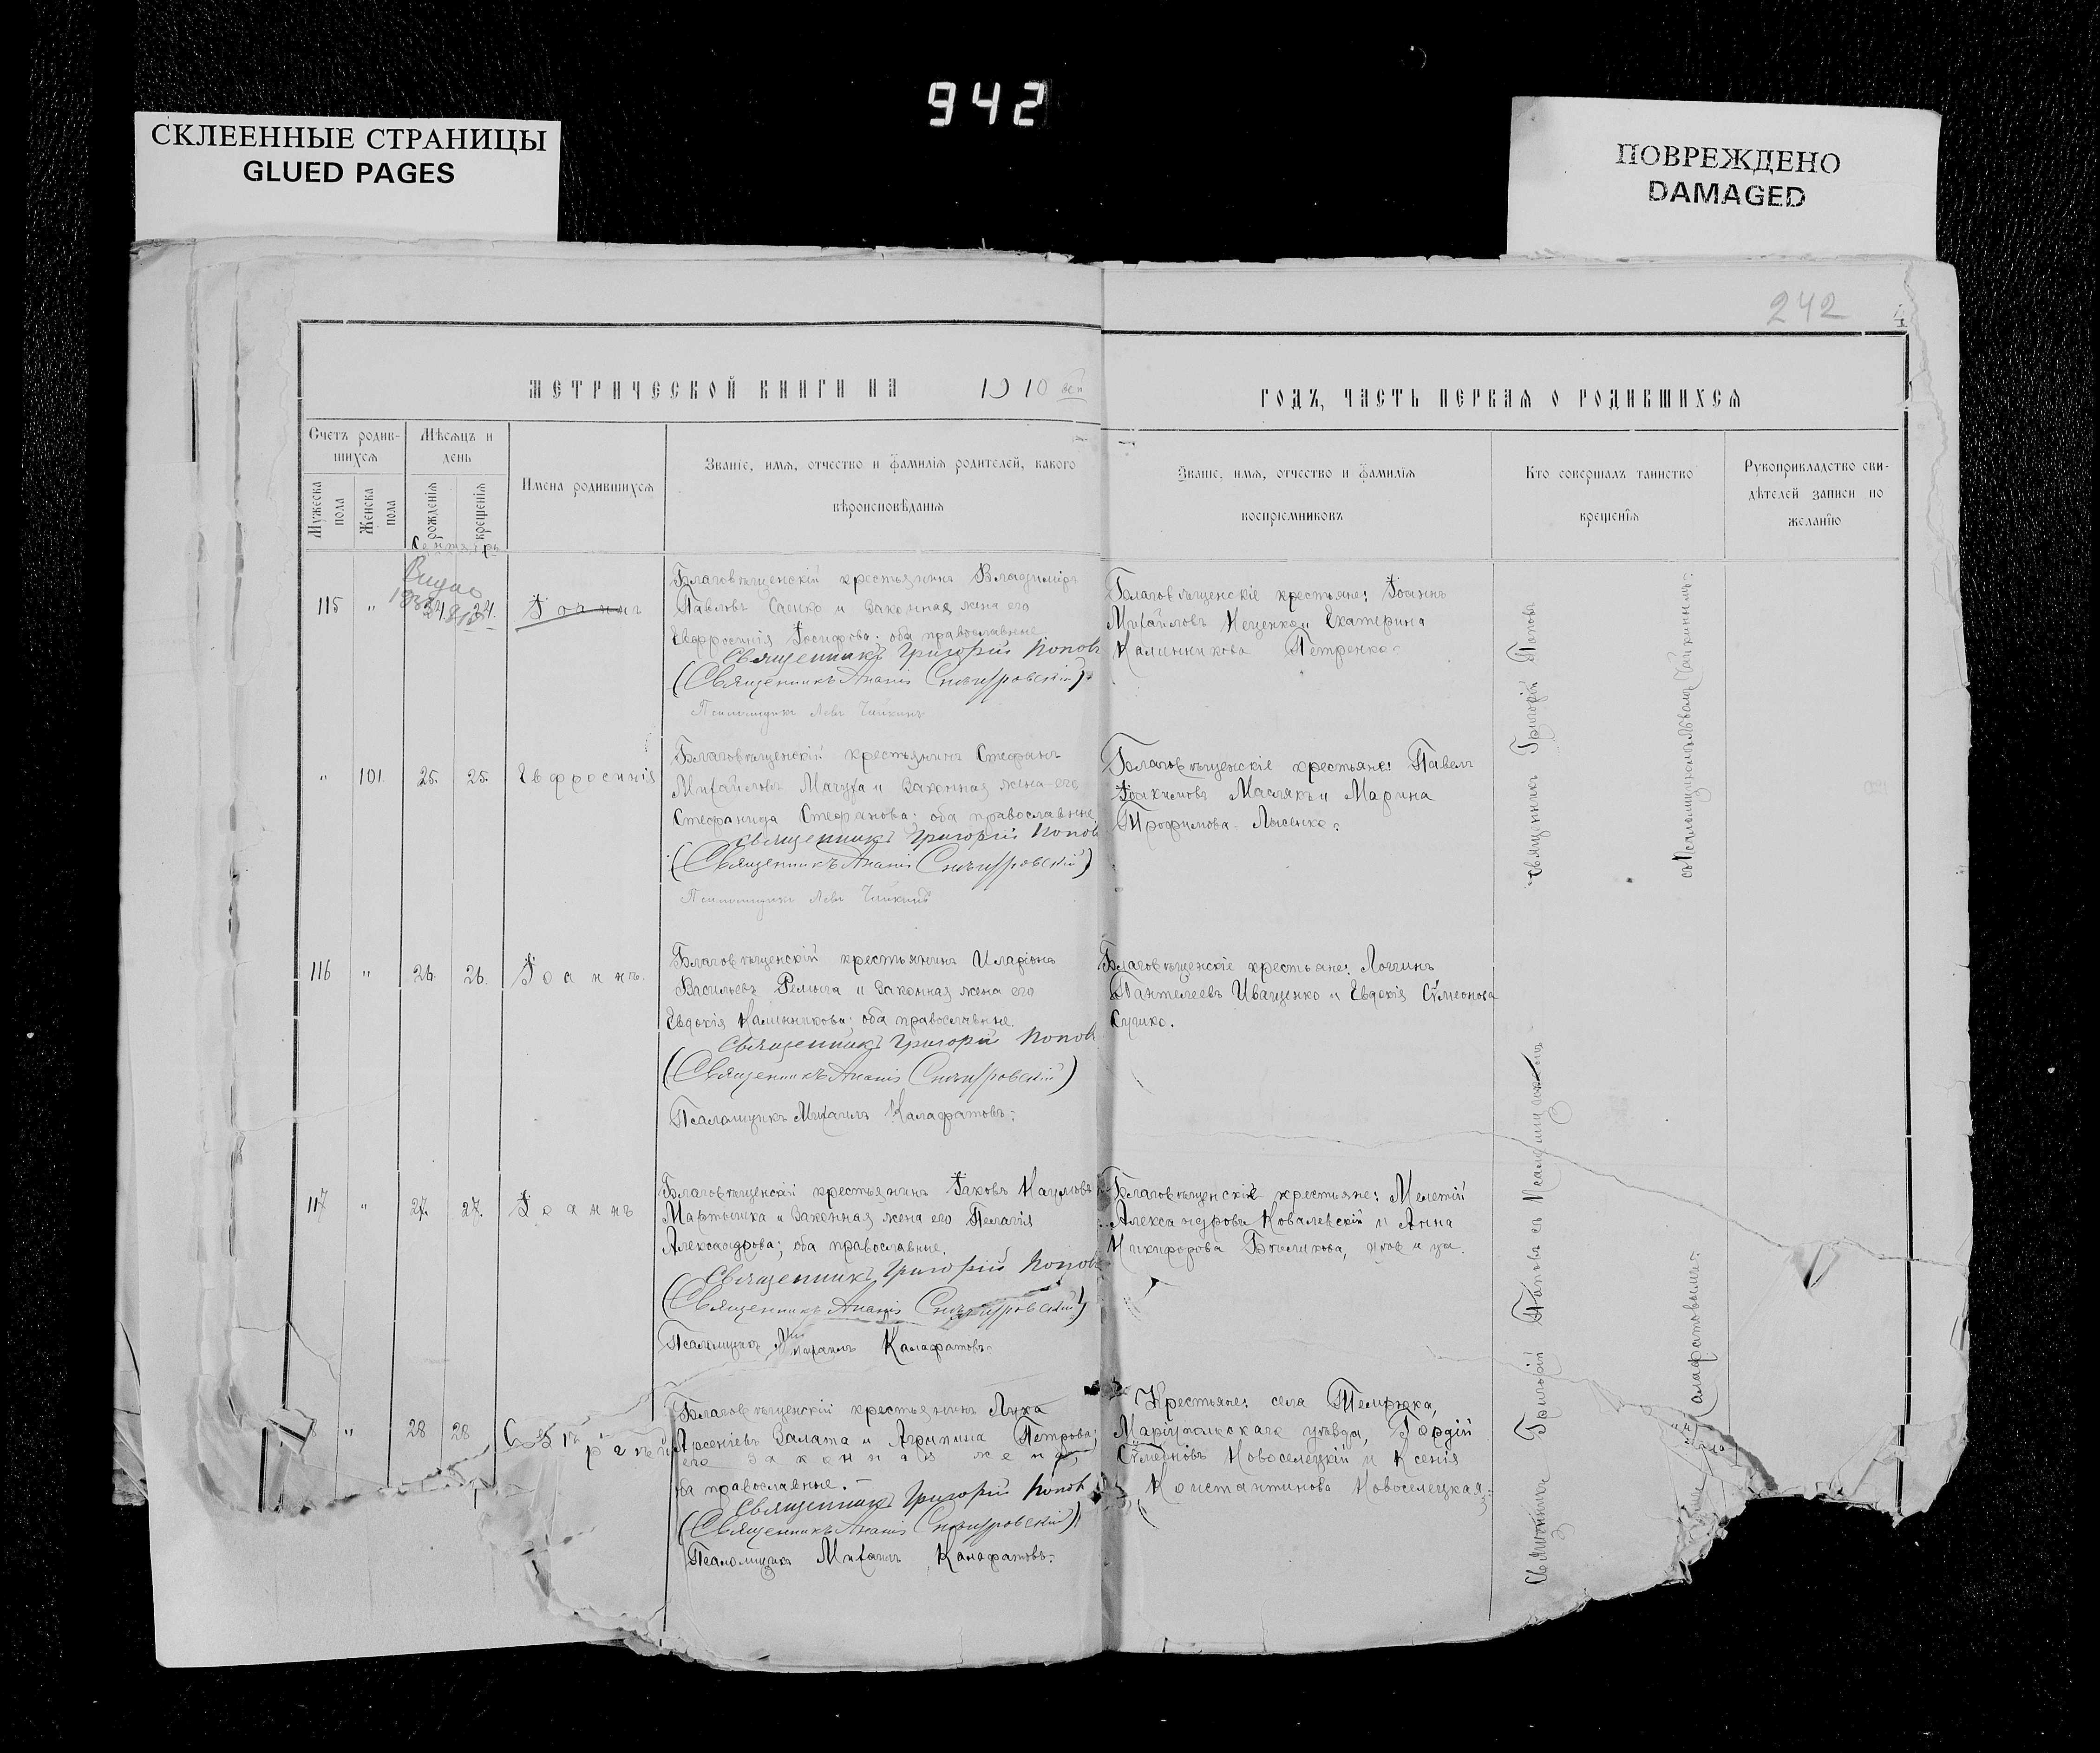 942
СКЛЕЕННЫЕ СТРАНИЦЫ
GLUED PAGES
ПОВРЕЖДЕНО
DAMAGED
242
МЕТРИЧЕСКОЙ КНИГИ НА 1910
ГОДЪ, ЧАСТЬ ПЕРВАЯ О РОДИВШИХСЯ
Счетъ родив-
шихся
Мужеска
пола
Женска
пола
Мѣсяцъ и
день
рожденія
крещенія
Имена родившихся
Званіе, имя, отчество и фамилія родителей, какого
вѣроисповѣданія
Званіе, имя, отчество и фамилія
воспріемниковъ
Кто совершалъ таинство
крещенія
Рукоприкладство сви-
дѣтелей записи по
желанію
Сентябрь
115 " 24. 24. Іоаннъ
Благовѣщенскій крестьянинъ Владиміръ
Павловъ Саенко и законная жена его
Евфросинія Іосифова; оба православные
Священникъ Григорій Поповъ
(Священникъ Ананія Снѣгуровскій)
Псаломщикъ Левъ Чайкинъ
Благовѣщенскіе крестьяне: Іоаннъ
Михайловъ Неценко и Екатерина
Калинникова Петренко.
" 101. 25. 25. Евфросинія
Благовѣщенскій крестьянинъ Стефанъ
Михайловъ Мачуха и законная жена его
Стефанида Стефанова; оба православные
Священникъ Григорій Поповъ
(Священникъ Ананія Снѣгуровскій)
Псаломщикъ Левъ Чайкинъ
Благовѣщенскіе крестьяне: Павелъ
Іоакимовъ Маслякъ и Марина
Трофимова Лысенко.
Священникъ Григорій Поповъ
съ Псаломщикомъ Львомъ Чайкинымъ.
116 " 26. 26. Іоаннъ.
Благовѣщенскій крестьянинъ Иларіонъ
Васильевъ Ремыга и законная жена его
Евдокія Калинникова; оба православные.
Священникъ Григорій Поповъ
(Священникъ Ананія Снѣгуровскій)
Псаломщикъ Михаилъ Калафатовъ.
Благовѣщенскіе крестьяне: Логгинъ
Пантелеевъ Иващенко и Евдокія Сѵмеонова
117 " 27. 27. Іоаннъ
Благовѣщенскій крестьянинъ Іаковъ Наумовъ
Мартышка и законная жена его Пелагія
Александрова; оба православные.
Священникъ Григорій Поповъ
(Священникъ Ананія Снѣгуровскій)
Псаломщикъ Михаилъ Калафатовъ.
Благовѣщенскіе крестьяне: Мелетій
Александровъ Ковалевскій и Анна
Никифорова
8 " 28 28
Благовѣщенскій крестьянинъ Лука
Арсеніевъ Залата и Агрипина Петрова;
его законная жена,
оба православные.
Священникъ Григорій Поповъ
(Священникъ Ананія Снѣгуровскій)
Псаломщикъ Михаилъ Калафатовъ.
Крестьяне: села Темрюка,
Маріупольскаго уѣзда, Гордій
Сѵмеоновъ Новоселецкій и Ксенія
Константинова Новоселецкая.
Священникъ Григорій Поповъ съ Псаломщикомъ
Калафатовымъ.